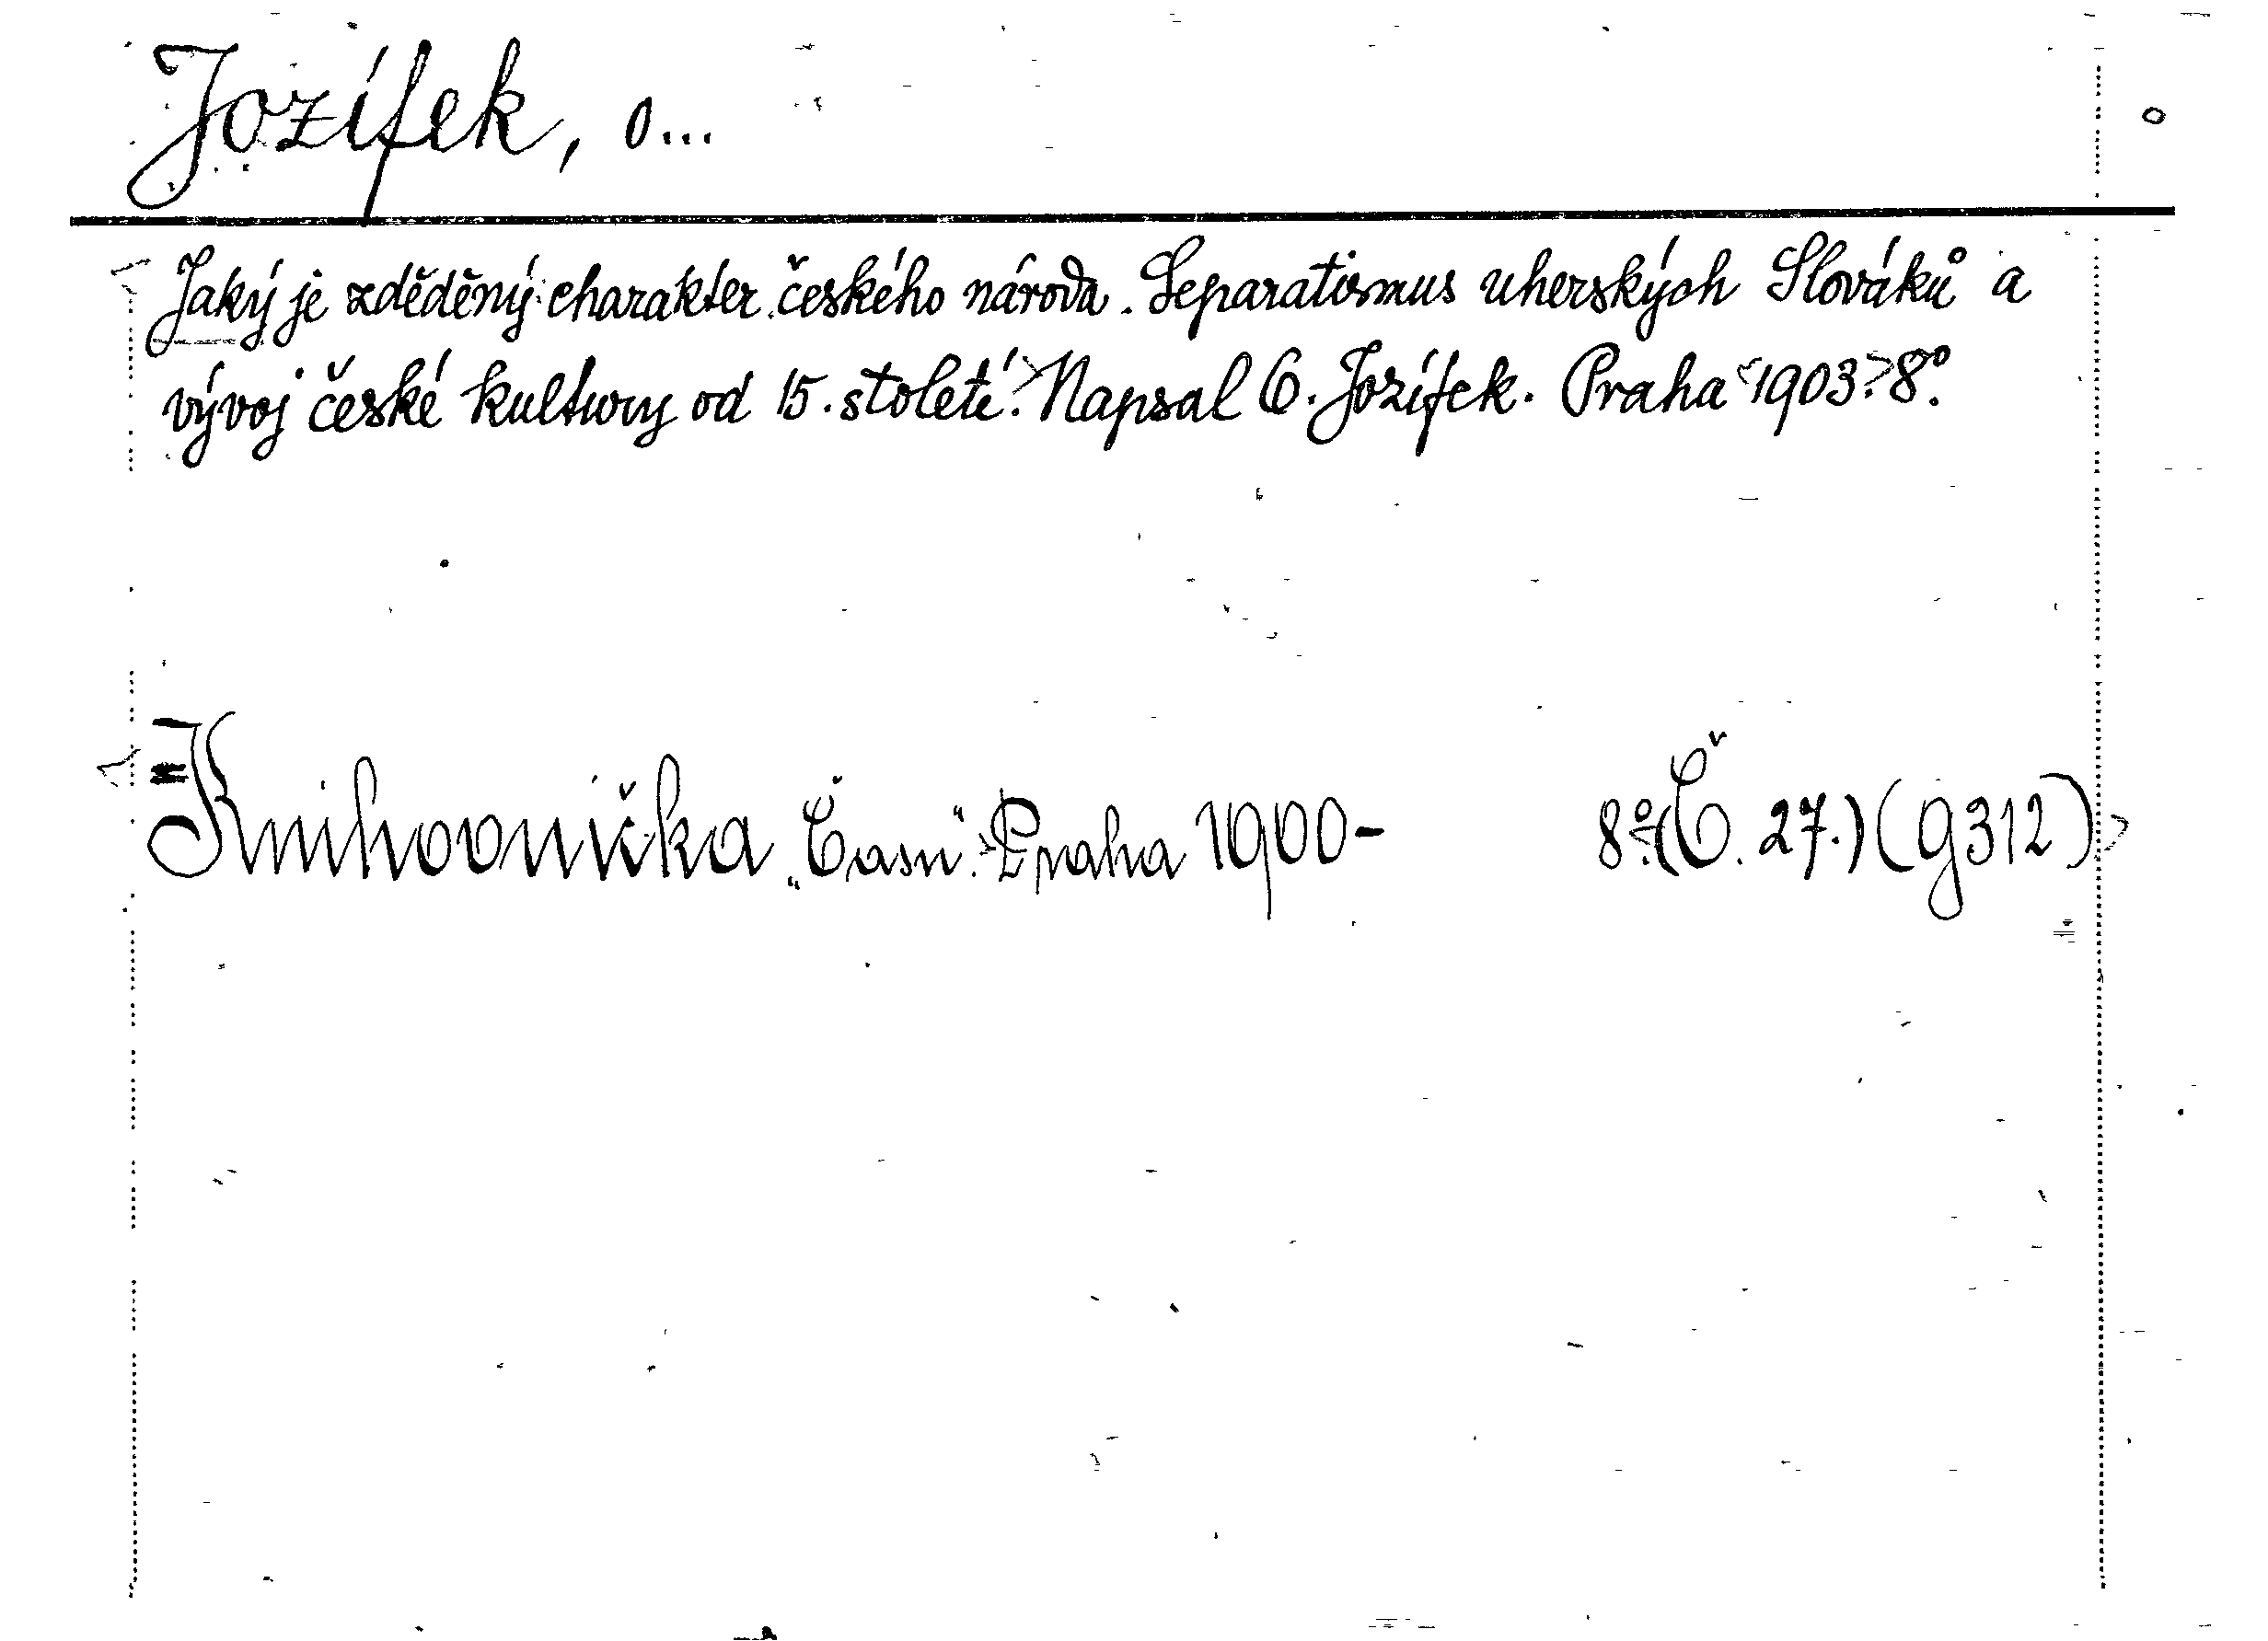 Jozífek, O...
Jaký je zděděný charakter českého národa. Separatismus uherských Slováků a
vývoj české kultury od 15. století. Napsal O. Jozífek. Praha 1903. 8º.
Knihovnička „Času“. Praha 1900- 8º. (Č. 27.) (g 312)